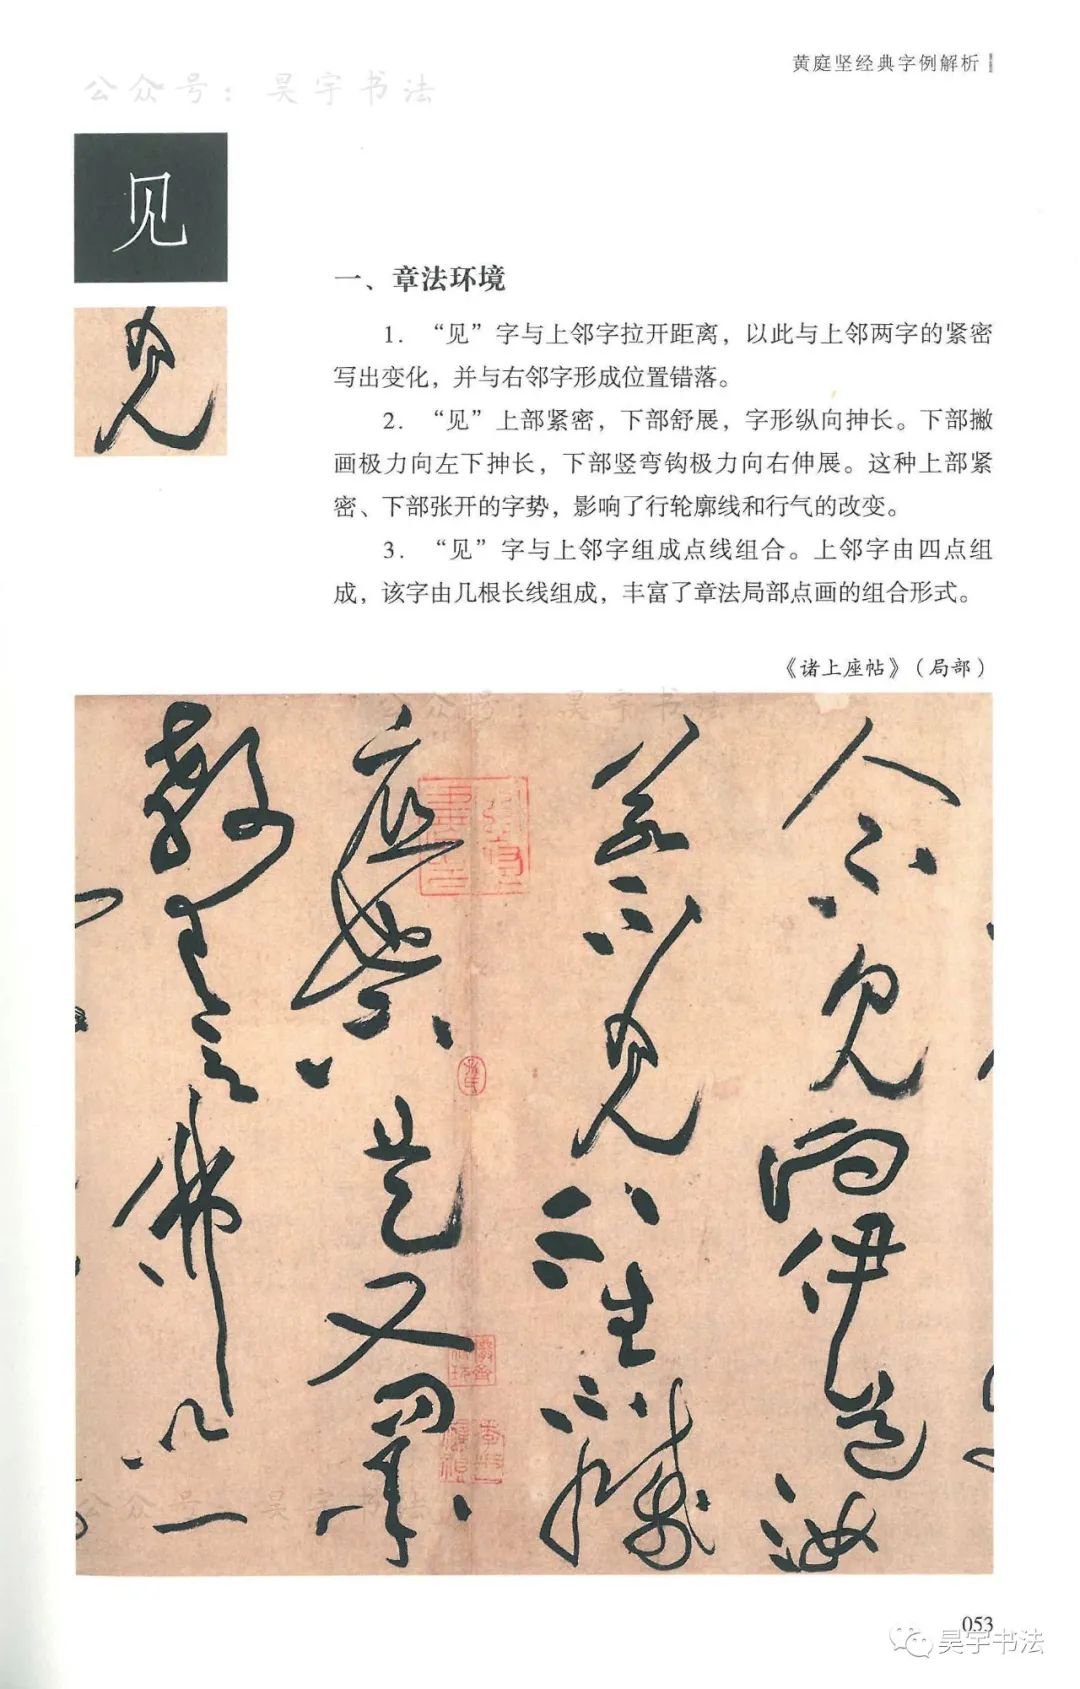 黄庭坚经典字例解析
公众号：昊宇书法
见
见
一、章法环境
1. “见”字与上邻字拉开距离，以此与上邻两字的紧密
写出变化，并与右邻字形成位置错落。
2. “见”上部紧密，下部舒展，字形纵向抻长。下部撇
画极力向左下抻长，下部竖弯钩极力向右伸展。这种上部紧
密、下部张开的字势，影响了行轮廓线和行气的改变。
3. “见”字与上邻字组成点线组合。上邻字由四点组
成，该字由几根长线组成，丰富了章法局部点画的组合形式。
《诸上座帖》（局部）
公众号：昊宇书法
尔不见
若不见不生
是又
教意佛
公众号：昊宇书法
053
昊宇书法